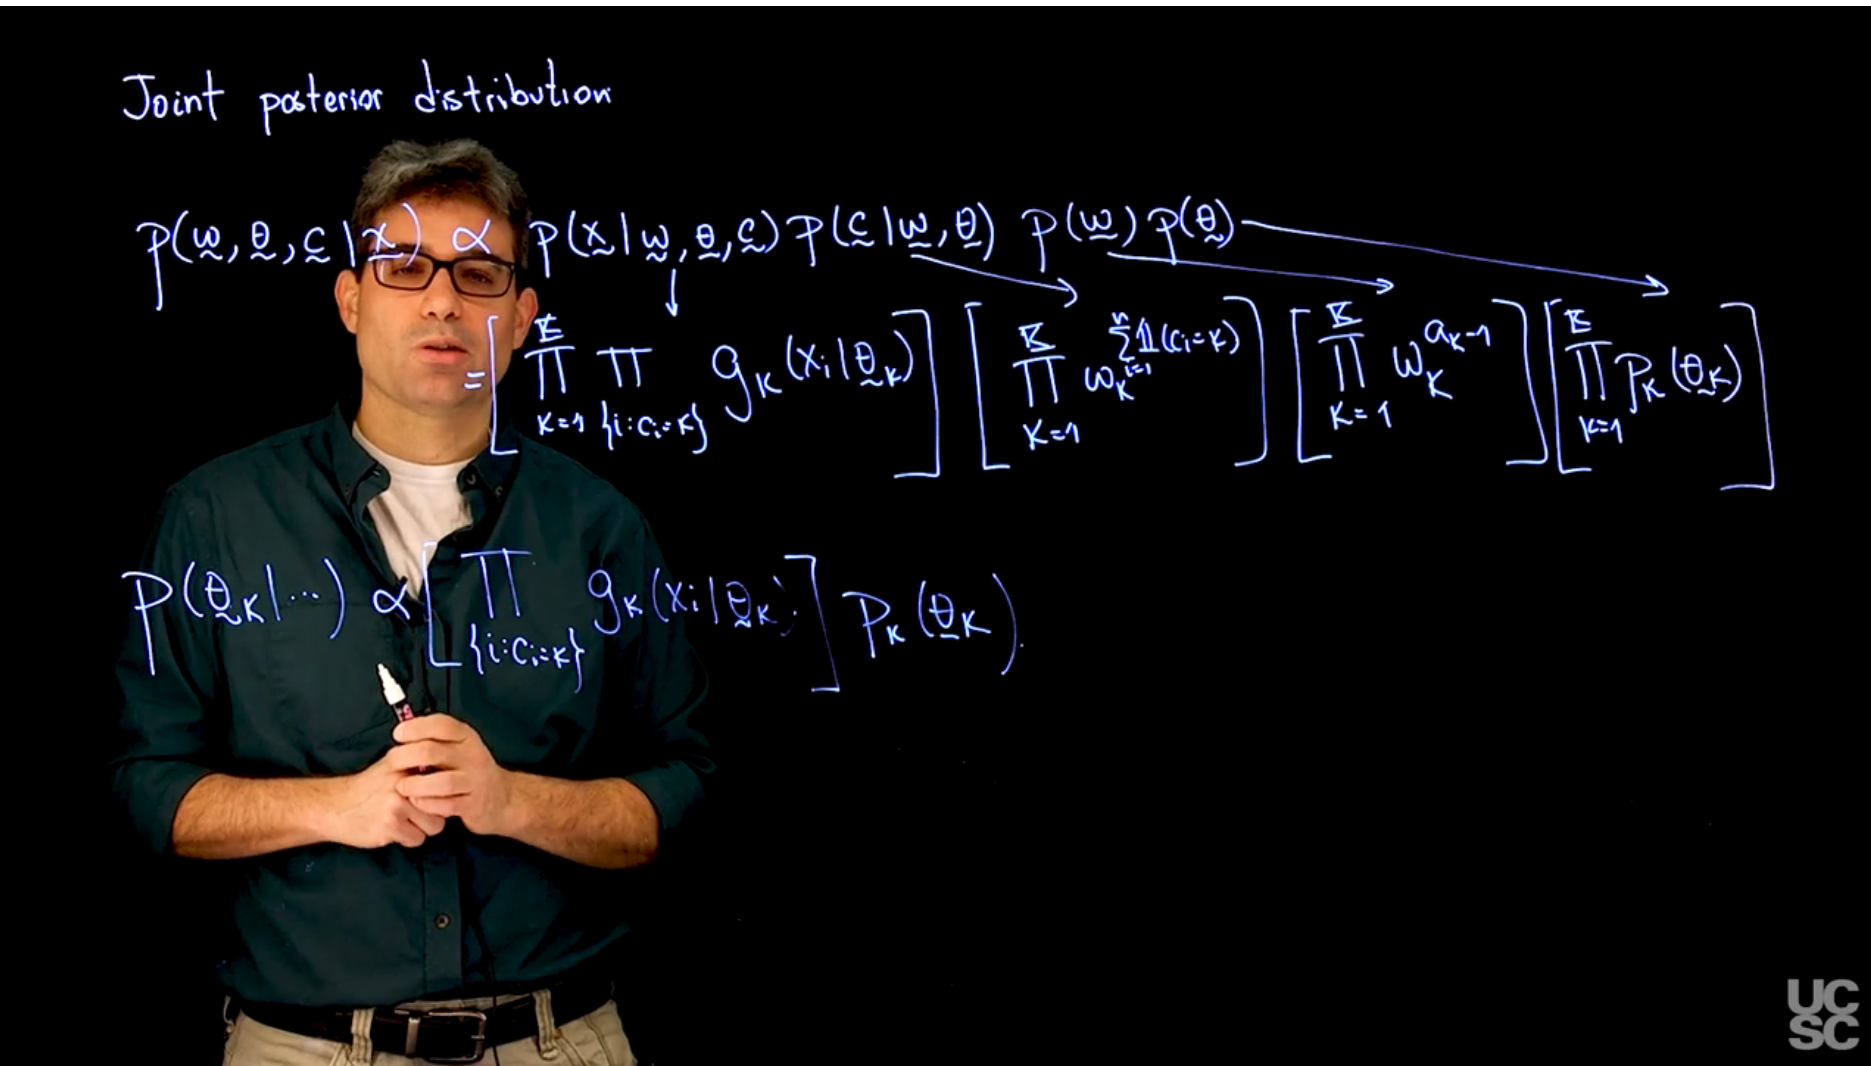 Joint posterior distribution
p(ω, θ, c | x) ∝ p(x | ω, θ, c) p(c | ω, θ) p(ω) p(θ)
= [∏_{k=1}^{K} ∏_{{i:c_i=k}} g_k(x_i | θ_k)] [∏_{k=1}^{K} ω_k^{∑_{i=1}^{n} 𝟙(c_i=k)}] [∏_{k=1}^{K} ω_k^{a_k-1}] [∏_{k=1}^{K} p_k(θ_k)]
p(θ_k | ...) ∝ [∏_{{i:c_i=k}} g_k(x_i | θ_k)] p_k(θ_k).
UC
SC